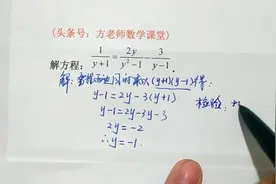 (头条号：方老师数学课堂)
解方程： 1/(y+1) = 2y/(y²-1) - 3/(y-1).
解：方程两边同时乘以(y+1)(y-1)得:
y-1=2y-3(y+1) 检验:
y-1=2y-3y-3
2y=-2
∴y=-1.